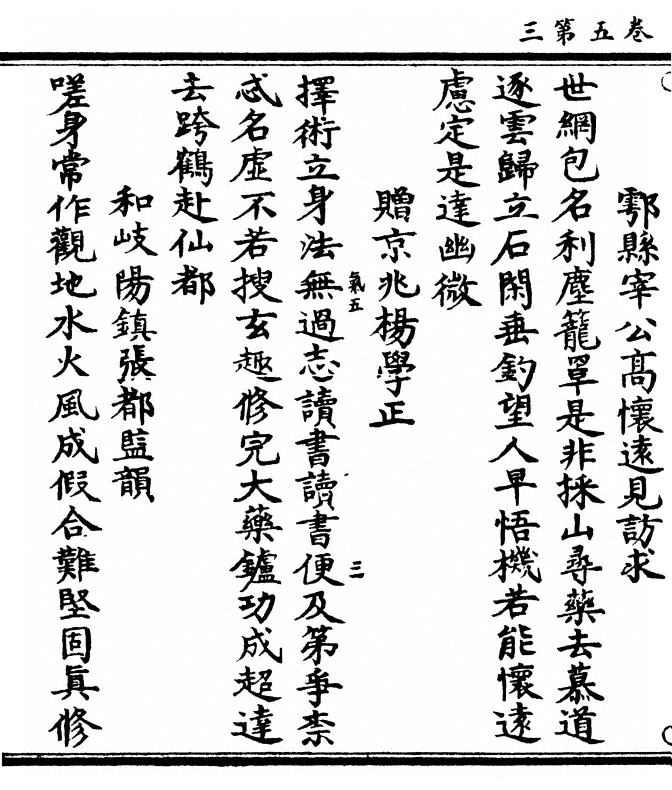 卷五第三
鄠縣宰公高懷遠見訪求
世網包名利塵籠罩是非採山尋藥去慕道
逐雲歸立石閑垂釣望人早悟機若能懷遠
慮定是達幽微
贈京兆楊學正
擇術立身法無過志讀書讀書便及第爭柰
氣五
三
忒名虛不若搜玄趣修完大藥鑪功成超達
去跨鶴赴仙都
和岐陽鎮張都監韻
嗟身常作觀地水火風成假合難堅固眞修